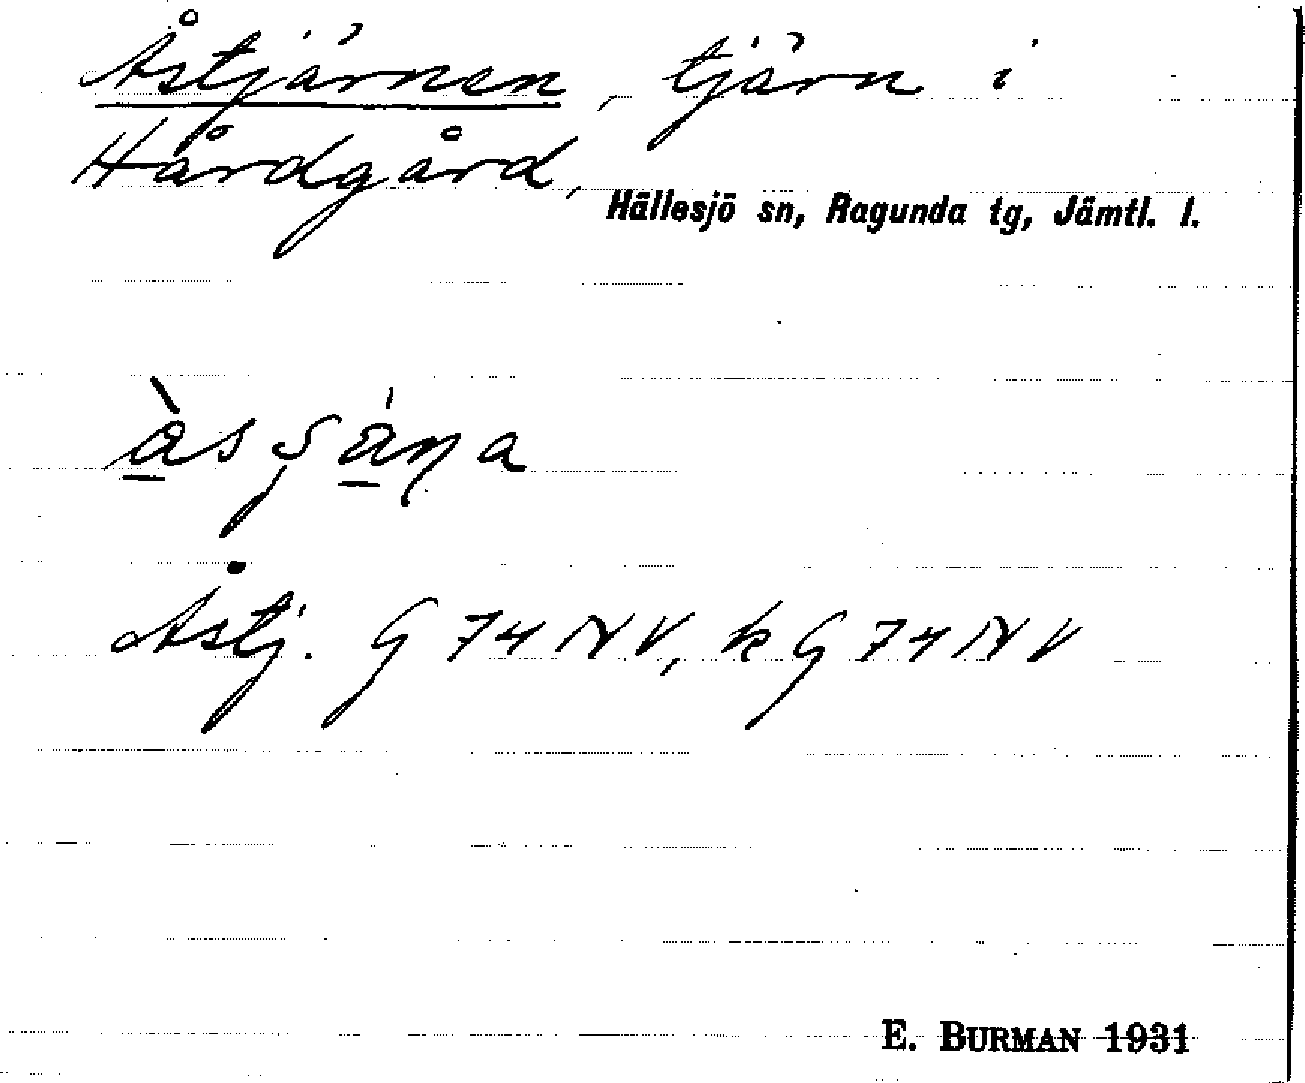 Åstjärnen, tjärn i
Hårdgård,
Hällesjö sn, Ragunda tg, Jämtl. l.
Åstj. G 74 NV, k G 74 NV
E. BURMAN 1931